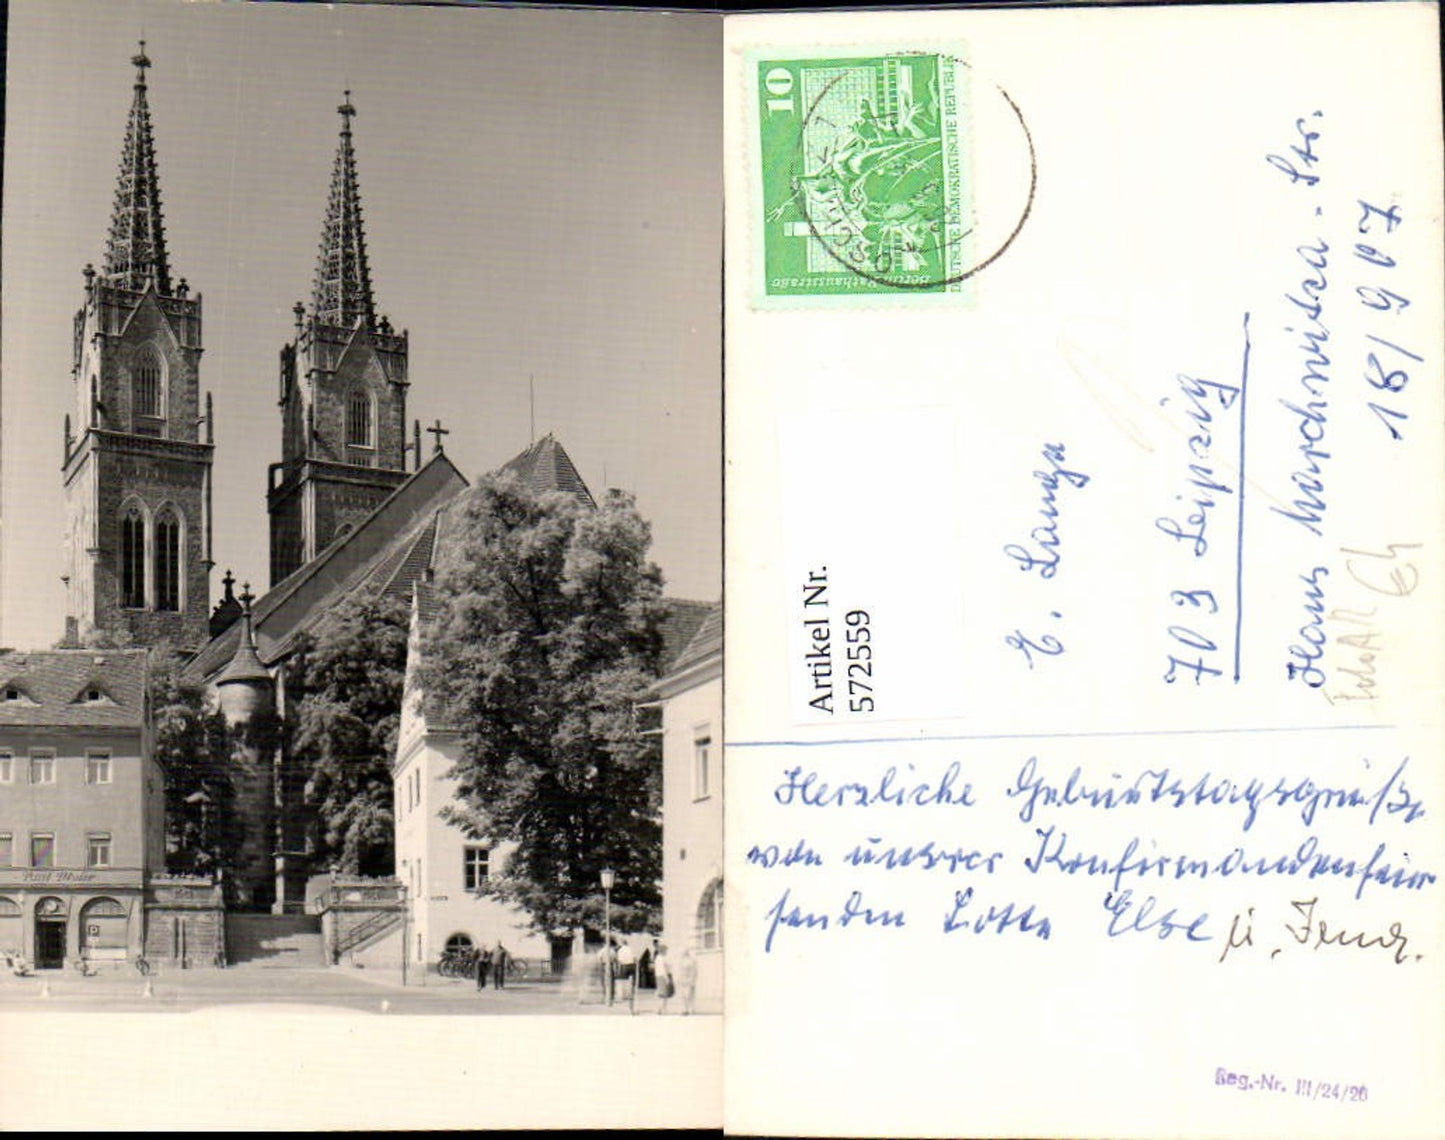 10
DEUTSCHE DEMOKRATISCHE REPUBLIK
Berlin Rathausstraße
OSCHATZ 1
Artikel Nr.
572559
E. Lange
703 Leipzig
Hans Marchwitza-Str.
18/907
Herzliche Geburtstagsgrüße
von unserer Konfirmandenfeier
senden Lotte Else u.
Reg.-Nr. III/24/20
P